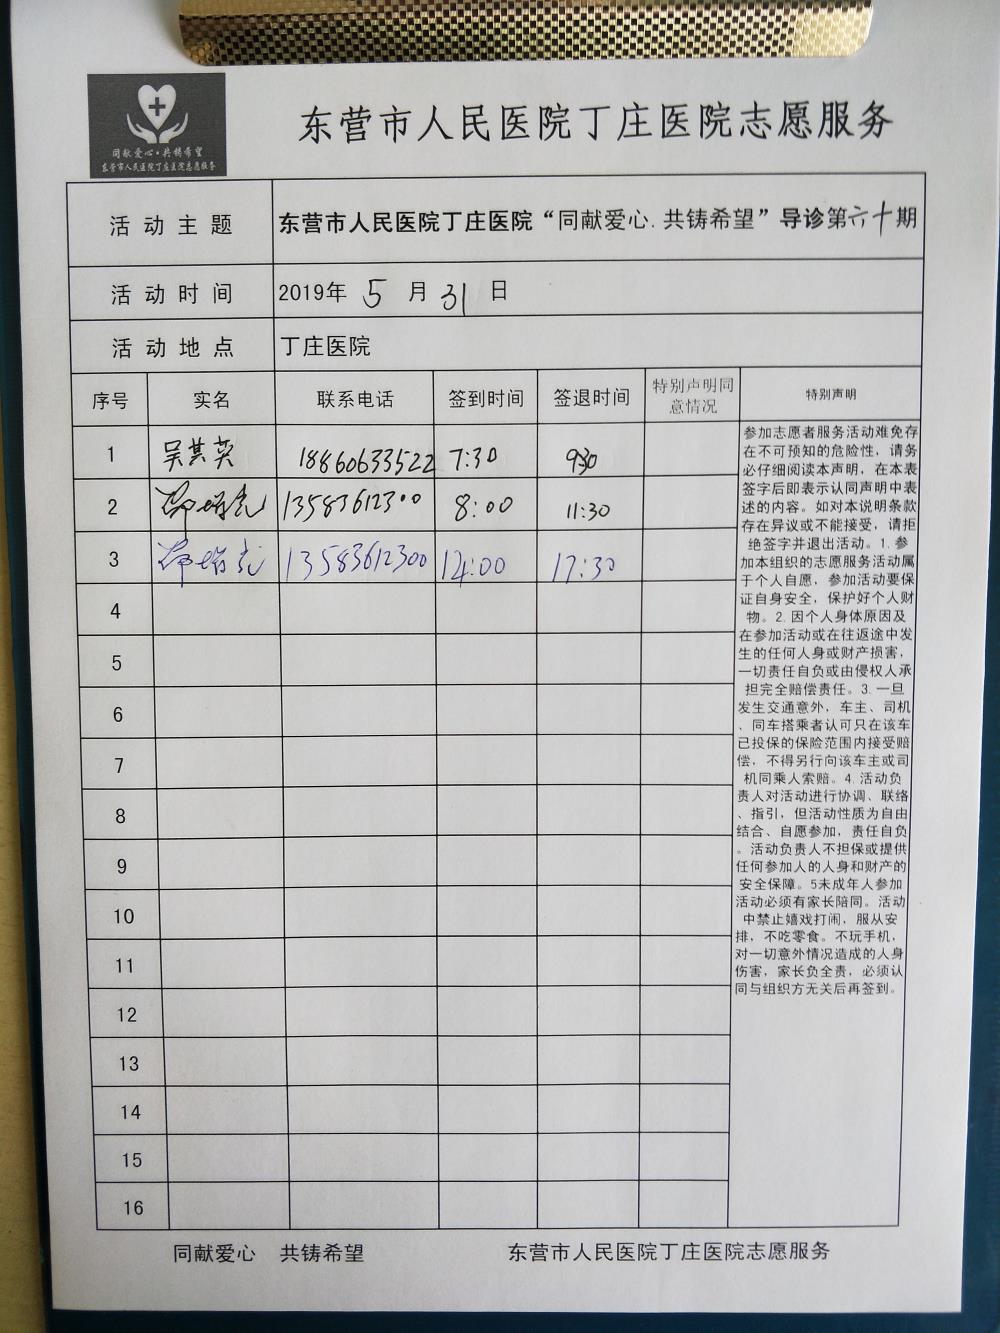 同献爱心·共铸希望
东营市人民医院丁庄医院志愿服务
东营市人民医院丁庄医院志愿服务
活动主题 东营市人民医院丁庄医院“同献爱心.共铸希望”导诊第六十期
活动时间 2019年 5 月 31 日
活动地点 丁庄医院
序号 实名 联系电话 签到时间 签退时间 特别声明同意情况 特别声明
1 吴其英 18860633522 7:30 930
2 13583612300 8:00 11:30
3 13583612300 14:00 17:30
4
5
6
7
8
9
10
11
12
13
14
15
16
参加志愿者服务活动难免存
在不可预知的危险性，请务
必仔细阅读本声明，在本表
签字后即表示认同声明中表
述的内容。如对本说明条款
存在异议或不能接受，请拒
绝签字并退出活动。1.参
加本组织的志愿服务活动属
于个人自愿，参加活动要保
证自身安全，保护好个人财
物。2.因个人身体原因及
在参加活动或在往返途中发
生的任何人身或财产损害，
一切责任自负或由侵权人承
担完全赔偿责任。3.一旦
发生交通意外，车主、司机
、同车搭乘者认可只在该车
已投保的保险范围内接受赔
偿，不得另行向该车主或司
机同乘人索赔。4.活动负
责人对活动进行协调、联络
、指引，但活动性质为自由
结合、自愿参加，责任自负
。活动负责人不担保或提供
任何参加人的人身和财产的
安全保障。5未成年人参加
活动必须有家长陪同。活动
中禁止嬉戏打闹，服从安
排，不吃零食。不玩手机，
对一切意外情况造成的人身
伤害，家长负全责，必须认
同与组织方无关后再签到。
同献爱心 共铸希望 东营市人民医院丁庄医院志愿服务